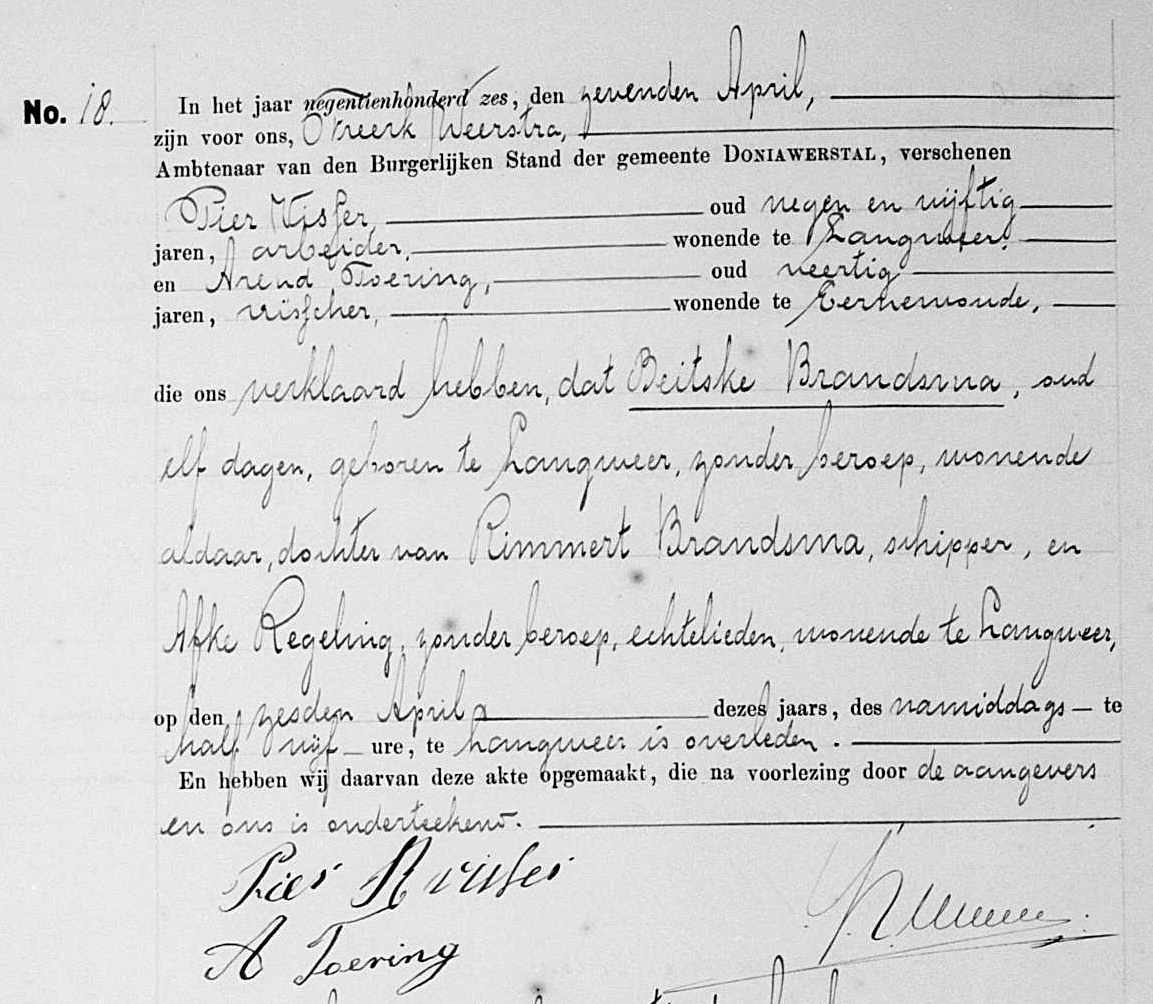 No. 18. In het jaar negentienhonderd zes, den zevenden April,
zijn voor ons, Weerstra,
Ambtenaar van den Burgerlijken Stand der gemeente DONIAWERSTAL, verschenen
Pier Visser, oud negen en vijftig
jaren, arbeider, wonende te Langweer,
en Arend Toering, oud veertig
jaren, visscher, wonende te Eernewoude,
die ons verklaard hebben, dat Beitske Brandsma, oud
elf dagen, geboren te Langweer, zonder beroep, wonende
aldaar, dochter van Rimmert Brandsma, schipper, en
Afke Regeling, zonder beroep, echtelieden, wonende te Langweer,
op den zesden April dezes jaars, des namiddags te
half vijf ure, te Langweer is overleden.
En hebben wij daarvan deze akte opgemaakt, die na voorlezing door de aangevers
en ons is onderteekend.
Pier R Visser
A Toering